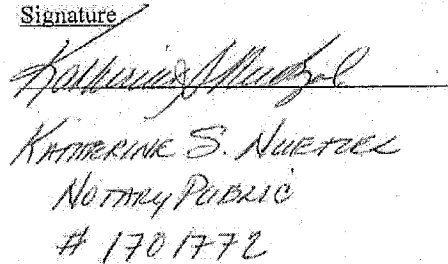 Signature
Katherine S. Nuetzel
KATHERINE S. NUETZEL
NOTARY PUBLIC
# 1701772